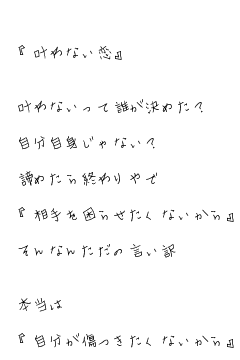 『叶わない恋』
叶わないって誰が決めた?
自分自身じゃない?
諦めたら終わりやで
『相手を困らせたくないから』
そんなんただの言い訳
本当は
『自分が傷つきたくないから』